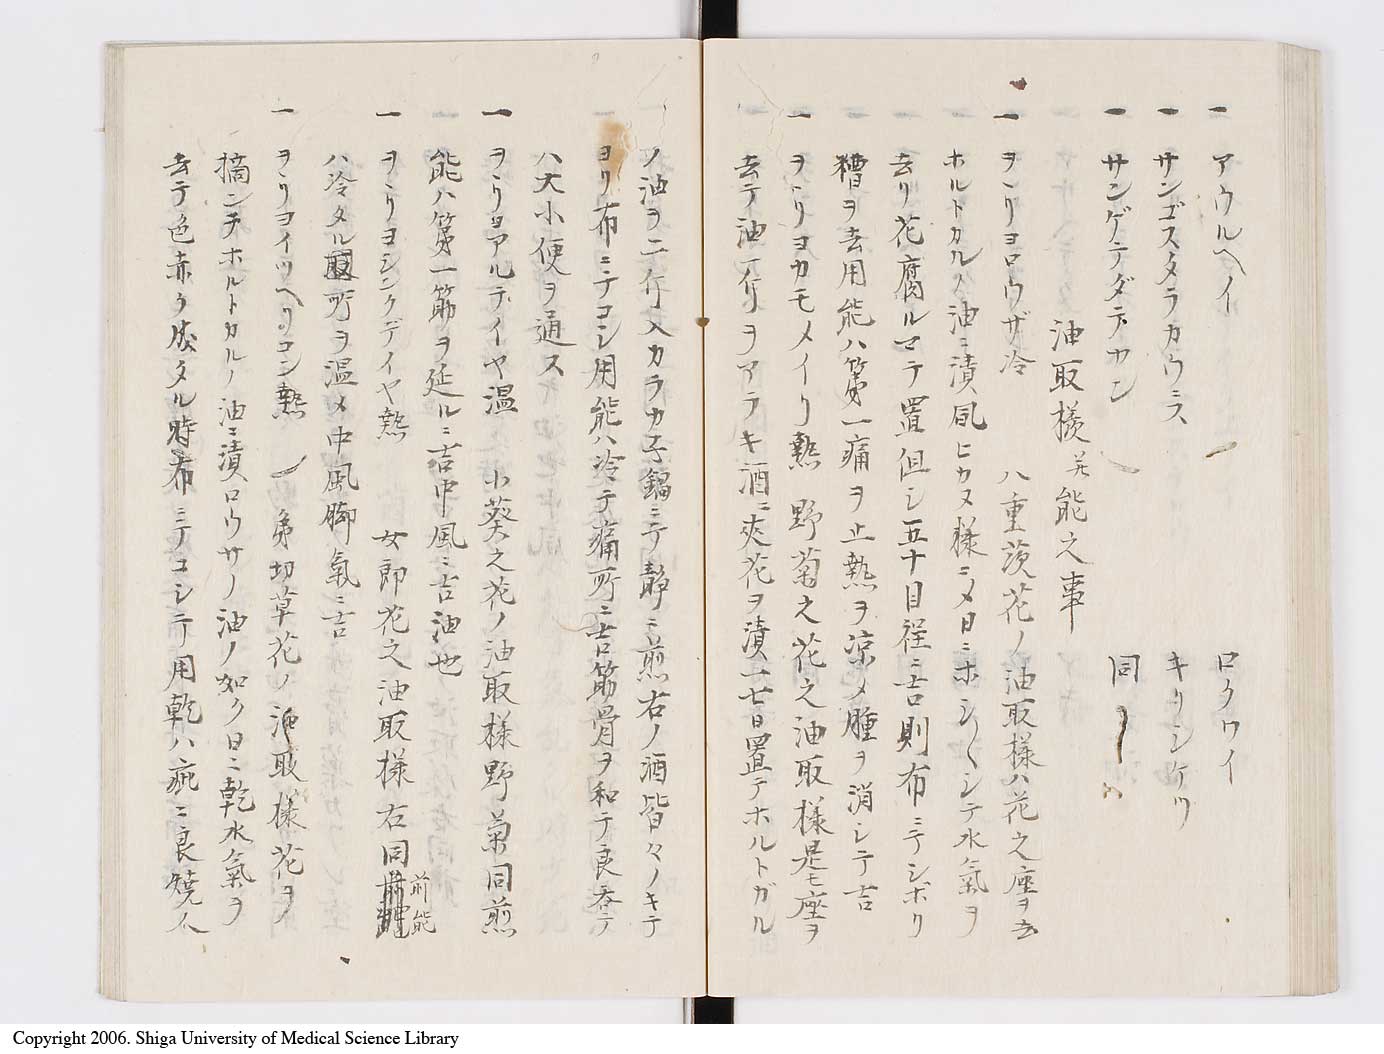 一 アウルヘイ ロクワイ
一 サンゴスタラカウミス キリンケツ
一 サンゲテダテカン 同
油取様并能之事
一 ヲヽリヨロウザ冷 八重茨花ノ油取様ハ花之座ヲ去
ホルトカルノ油ニ漬風ヒカヌ様ニメ日ニホシ〳〵シテ水氣ヲ
去リ花腐ルマテ置但シ五十目程ニ吉則布ニテシボリ
糟ヲ去用能ハ第一痛ヲ止熱ヲ凉メ腫ヲ消シテ吉
一 ヲヽリヨカモメイリ熱 野菊之花之油取様是モ座ヲ
去テ油一斤ヲアラキ酒ニ夾花ヲ漬一七日置テホルトガル
ノ油ヲ二斤入カラカ子鍋ニテ靜ニ煎右ノ酒皆々ノキテ
ヨリ布ニテコシ用能ハ冷テ痛所ニ吉筋骨ヲ和テ良呑テ
ハ大小便ヲ通ス
一 ヲヽリヨアルテイヤ温 小葵之花ノ油取様野菊同煎
能ハ第一筋ヲ延ルニ吉中風ニ吉油也
一 ヲヽリヨシンケデイヤ熱 女郎花之油取様右同前能
ハ冷タル所ヲ温メ中風脚氣ニ吉
一 ヲヽリヨイツヘリコン熱 弟切草花ノ油取様花ヲ
摘ンテホルトカルノ油ニ漬ロウサノ油ノ如ク日ニ乾水氣ヲ
去テ色赤ク成タル時布ニテコシテ用乾ハ疵ニ良焼人
Copyright 2006. Shiga University of Medical Science Library